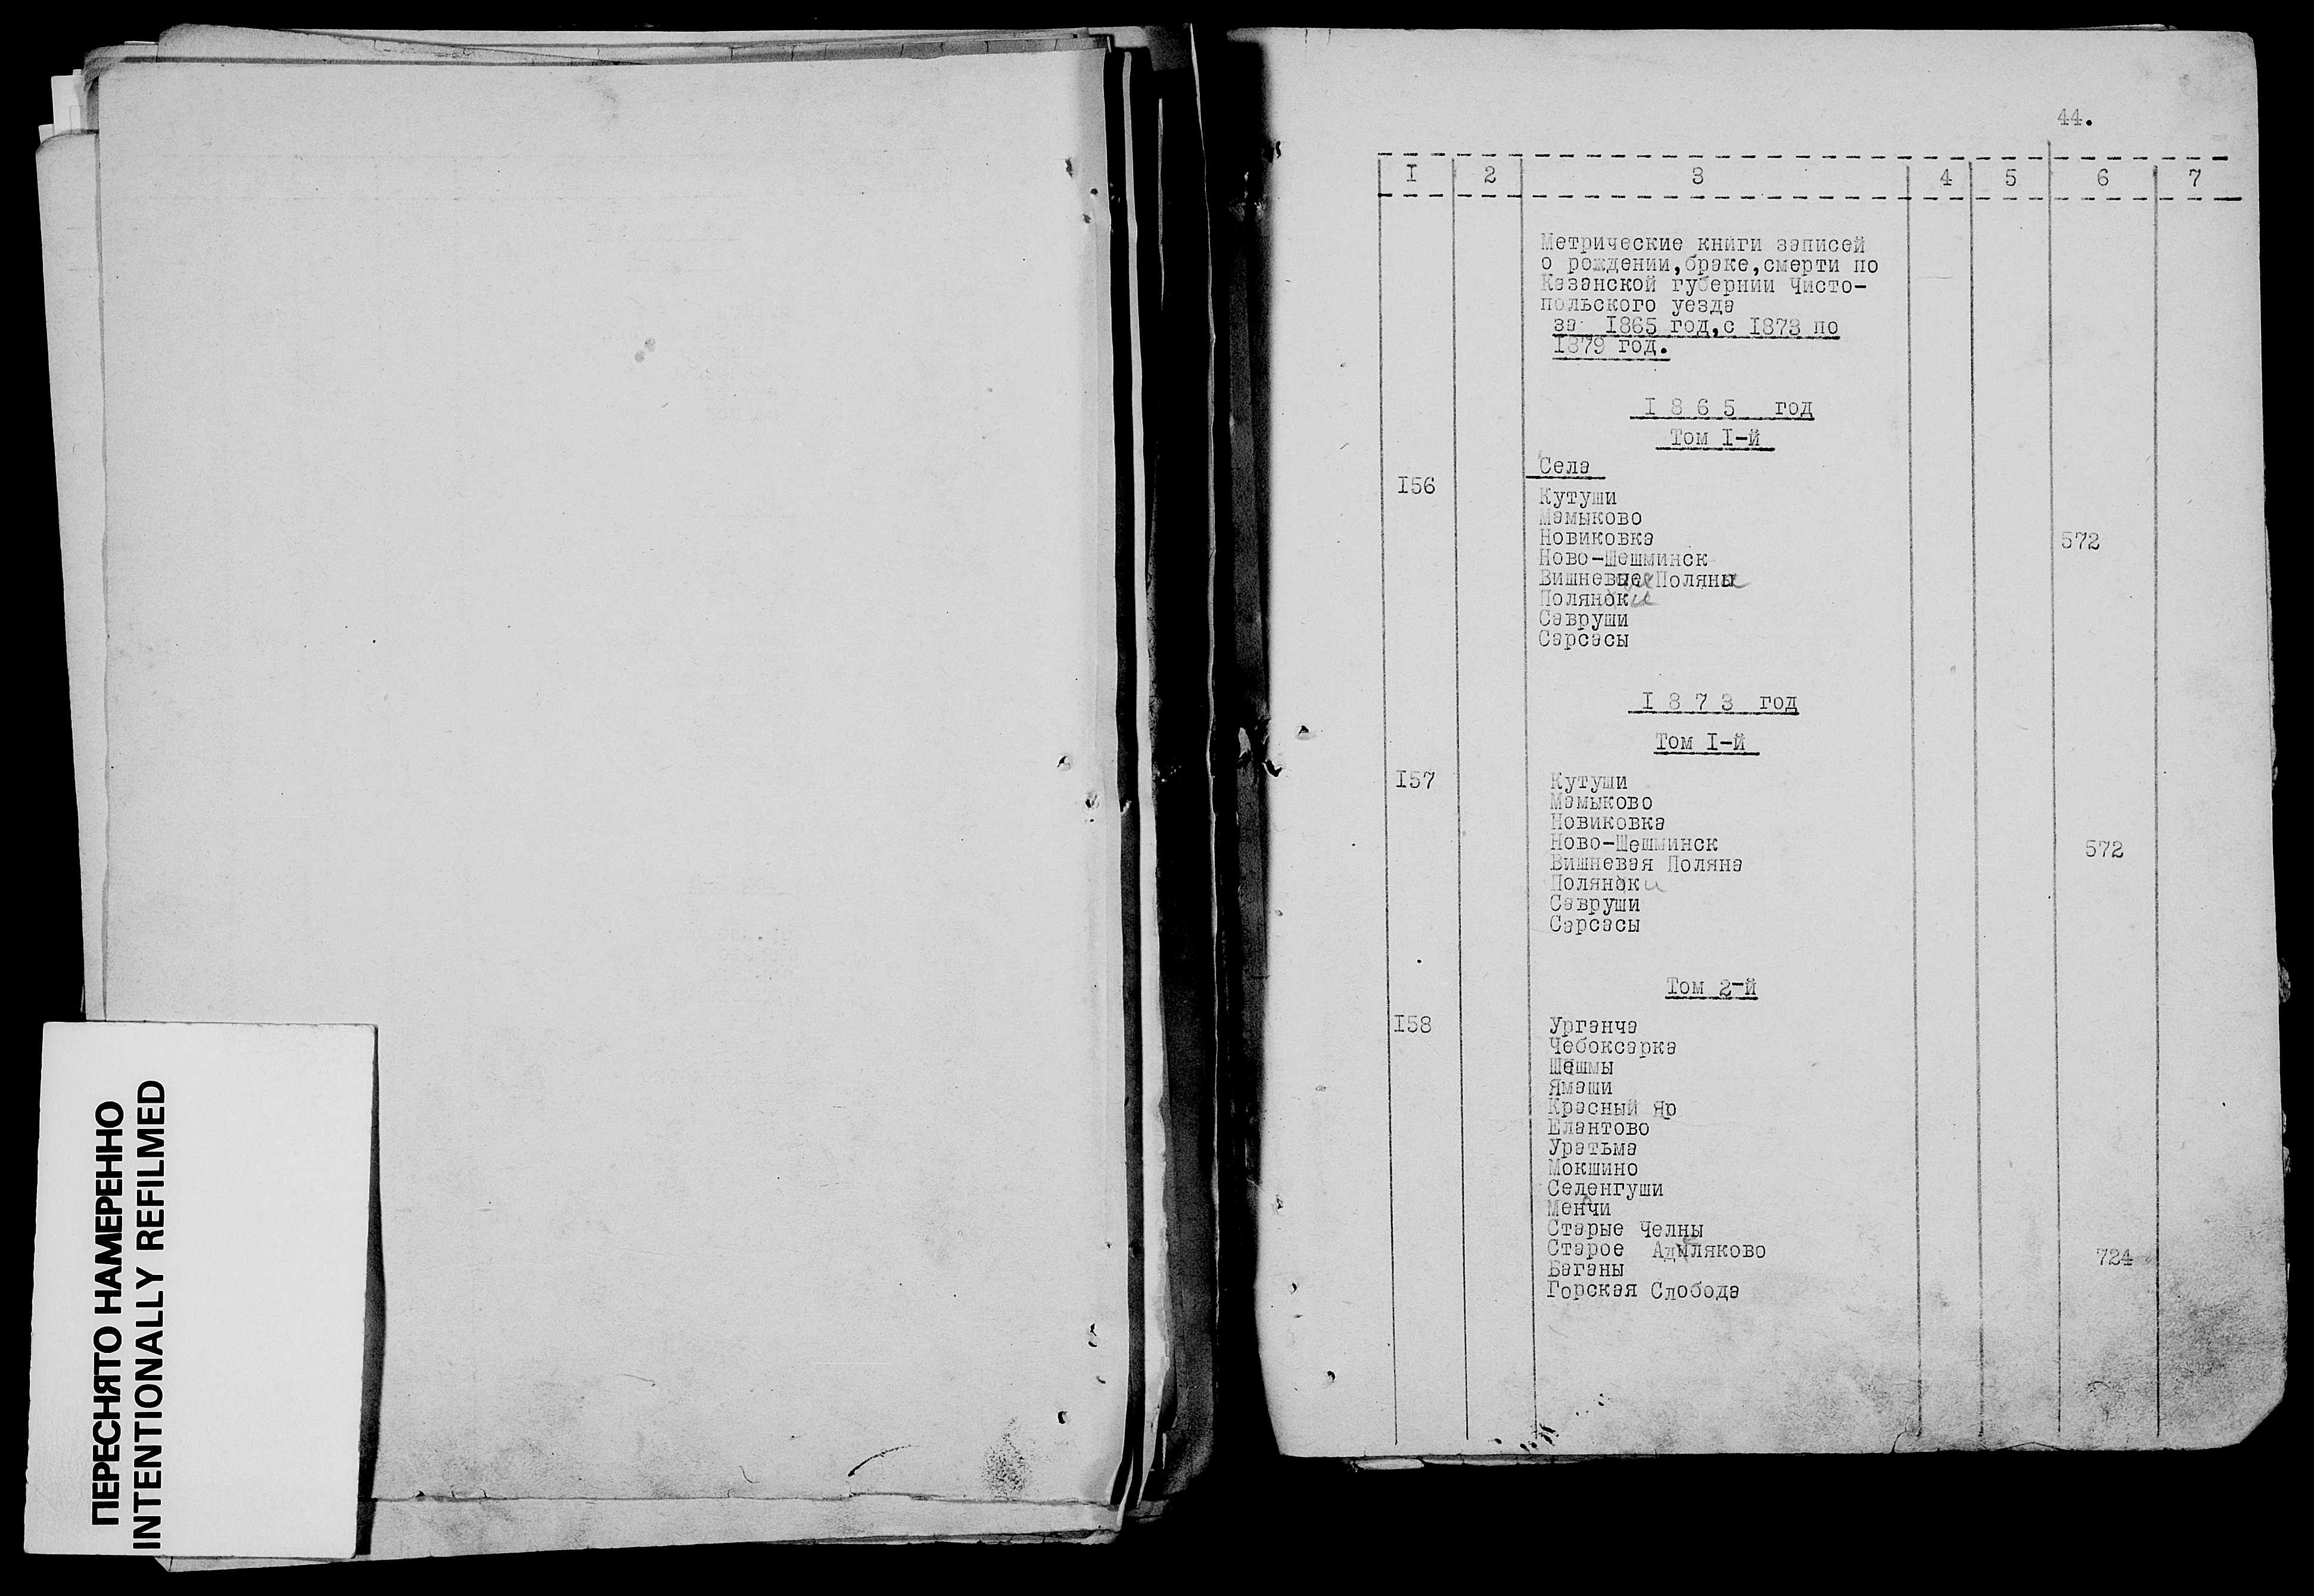 ПЕРЕСНЯТО НАМЕРЕННО
INTENTIONALLY REFILMED
44.
I 2 3 4 5 6 7
Метрические книги записей
о рождении,браке,смерти по
Казанской губернии Чисто-
польского уезда
за I865 год,с I873 по
I879 год.
I 8 6 5 год
Том I-й
Села
I56
Кутуши
Мамыково
Новиковка 572
Ново-Шешминск
Вишневые Поляны
Полянки
Савруши
Сарсасы
I 8 7 3 год
Том I-й
I57 Кутуши
Мамыково
Новиковка
Ново-Шешминск 572
Вишневая Поляна
Полянки
Савруши
Сарсасы
Том 2-й
I58 Урганча
Чебоксарка
Шешмы
Ямаши
Красный Яр
Елантово
Уратьма
Мокшино
Селенгуши
Менчи
Старые Челны
Старое Аделяково 724
Баганы
Горская Слобода